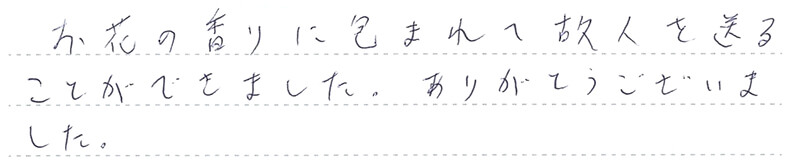 お花の香りに包まれて故人を送る
ことができました。ありがとうございま
した。